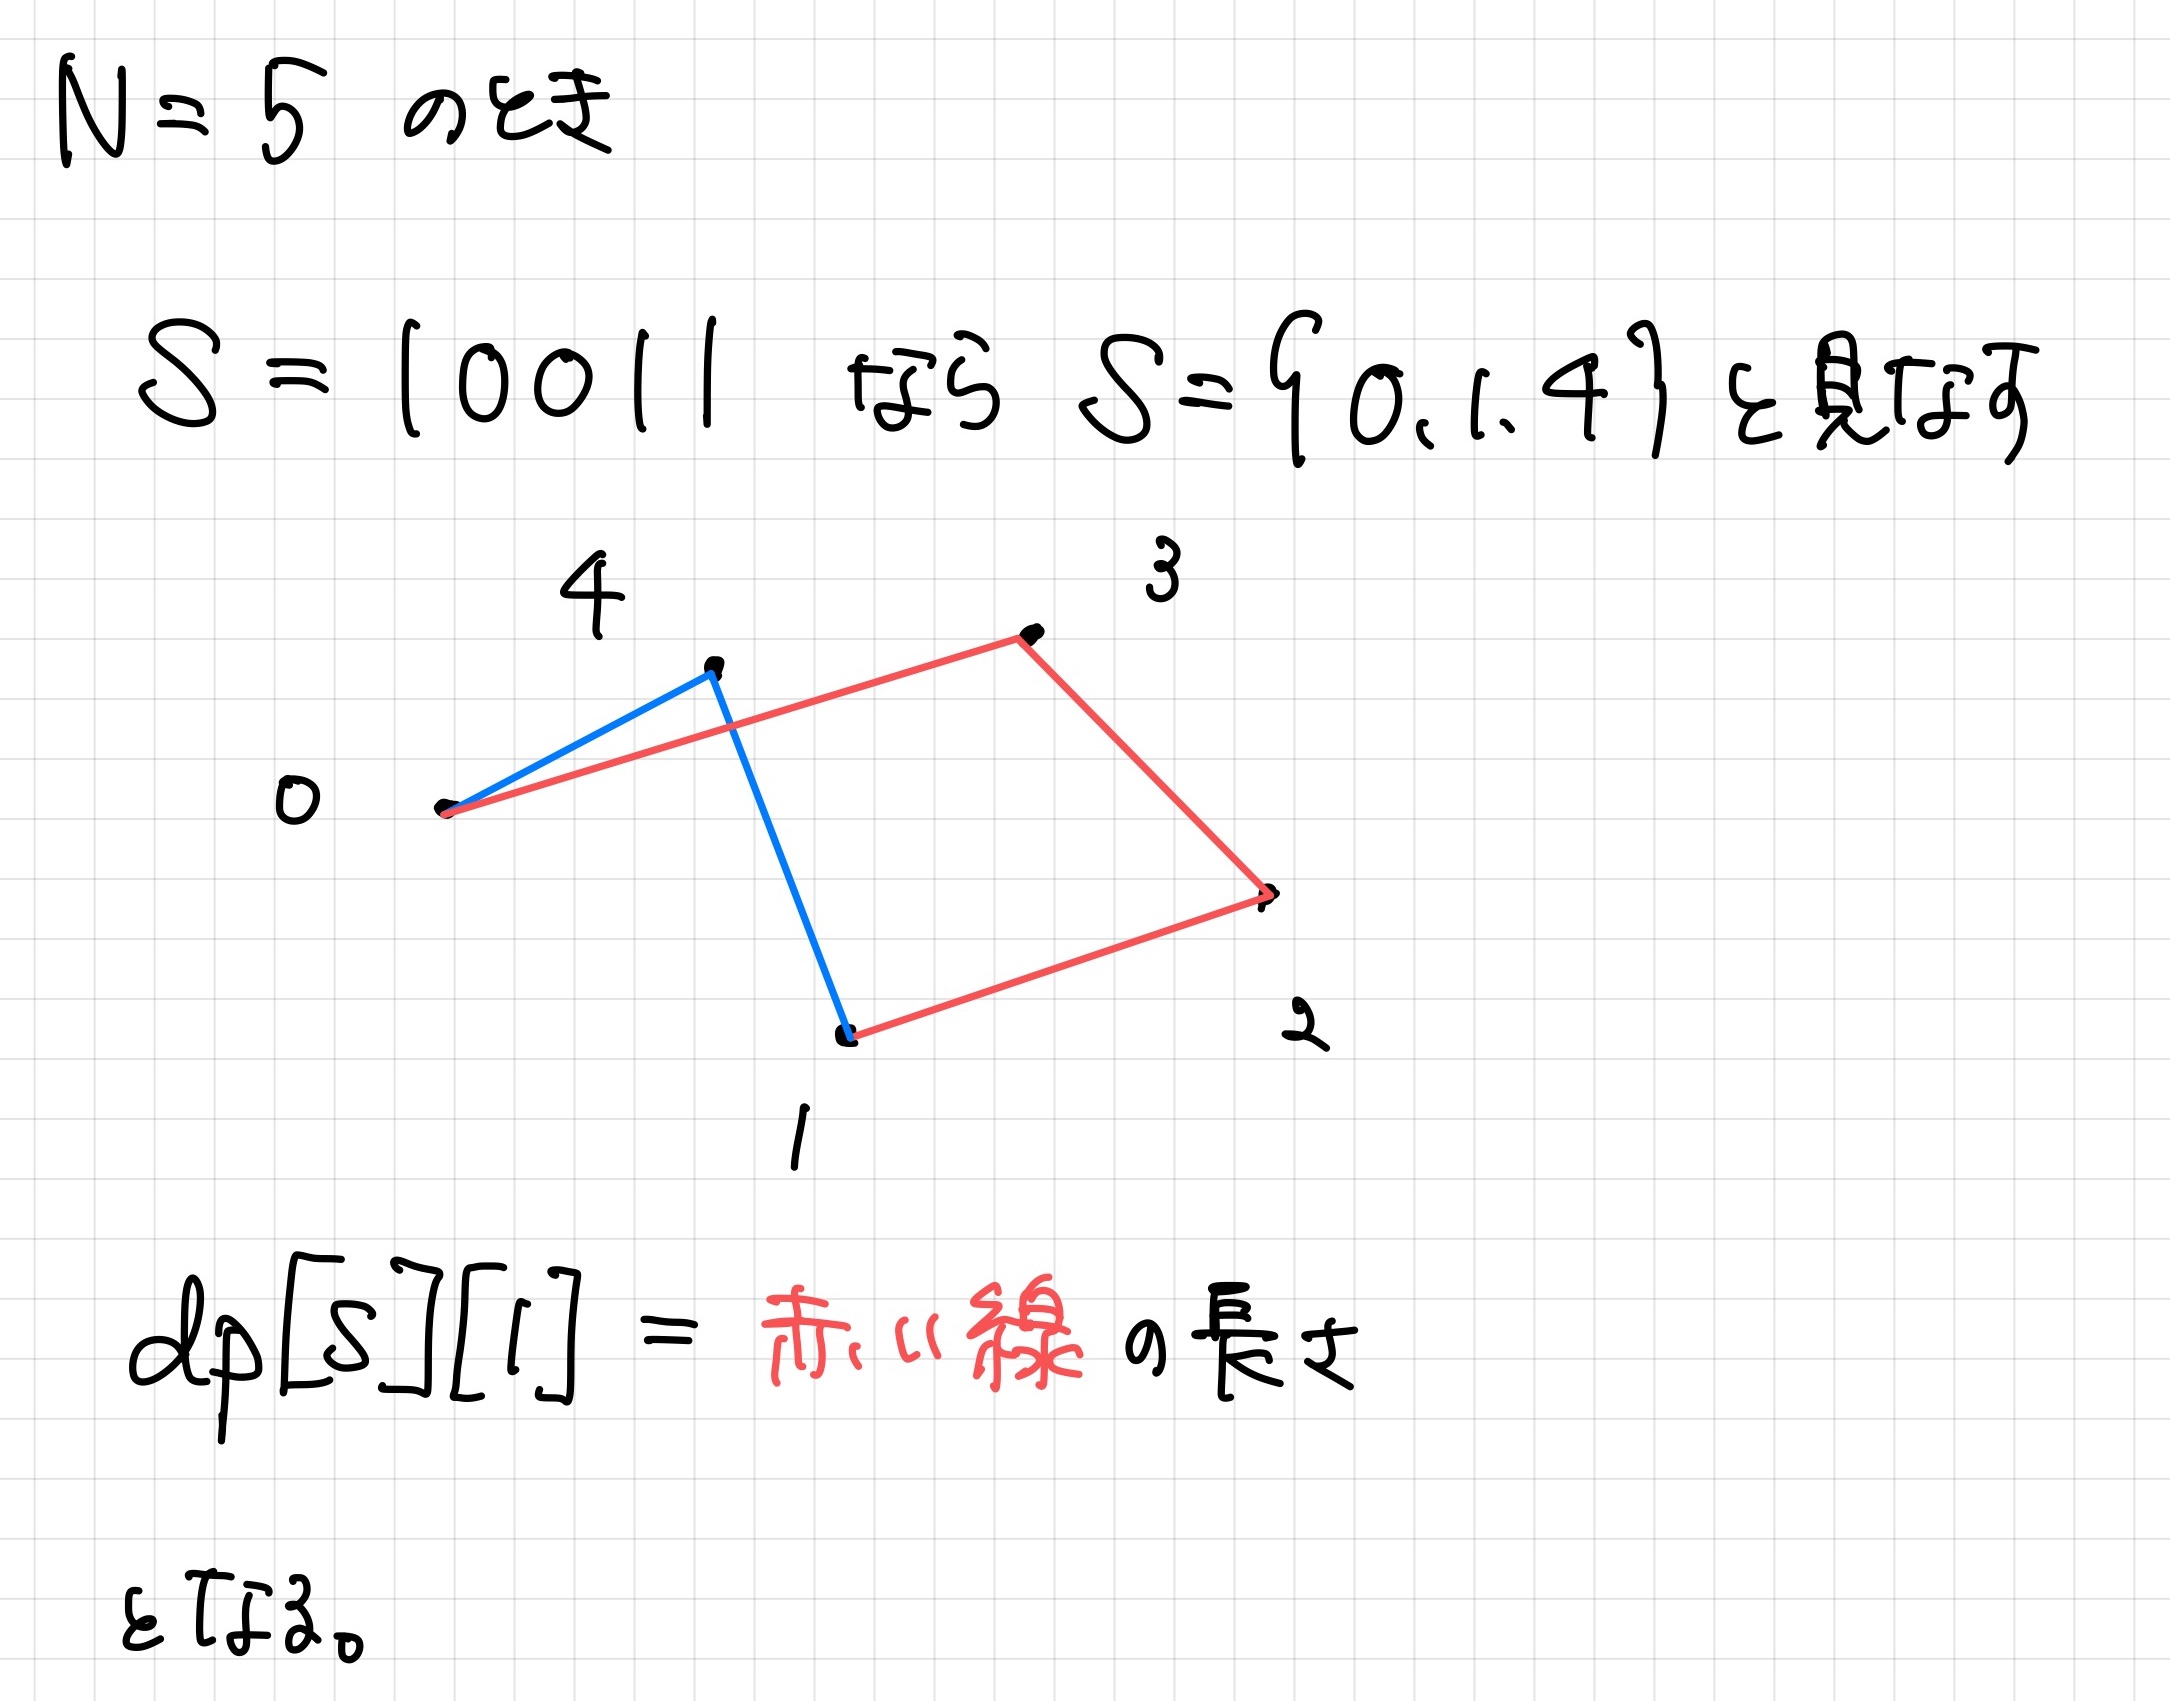 N=5 のとき
S=10011 なら S={0,1,4} と見なす
4
3
0
2
1
dp[S][1] = 赤い線の長さ
となる。